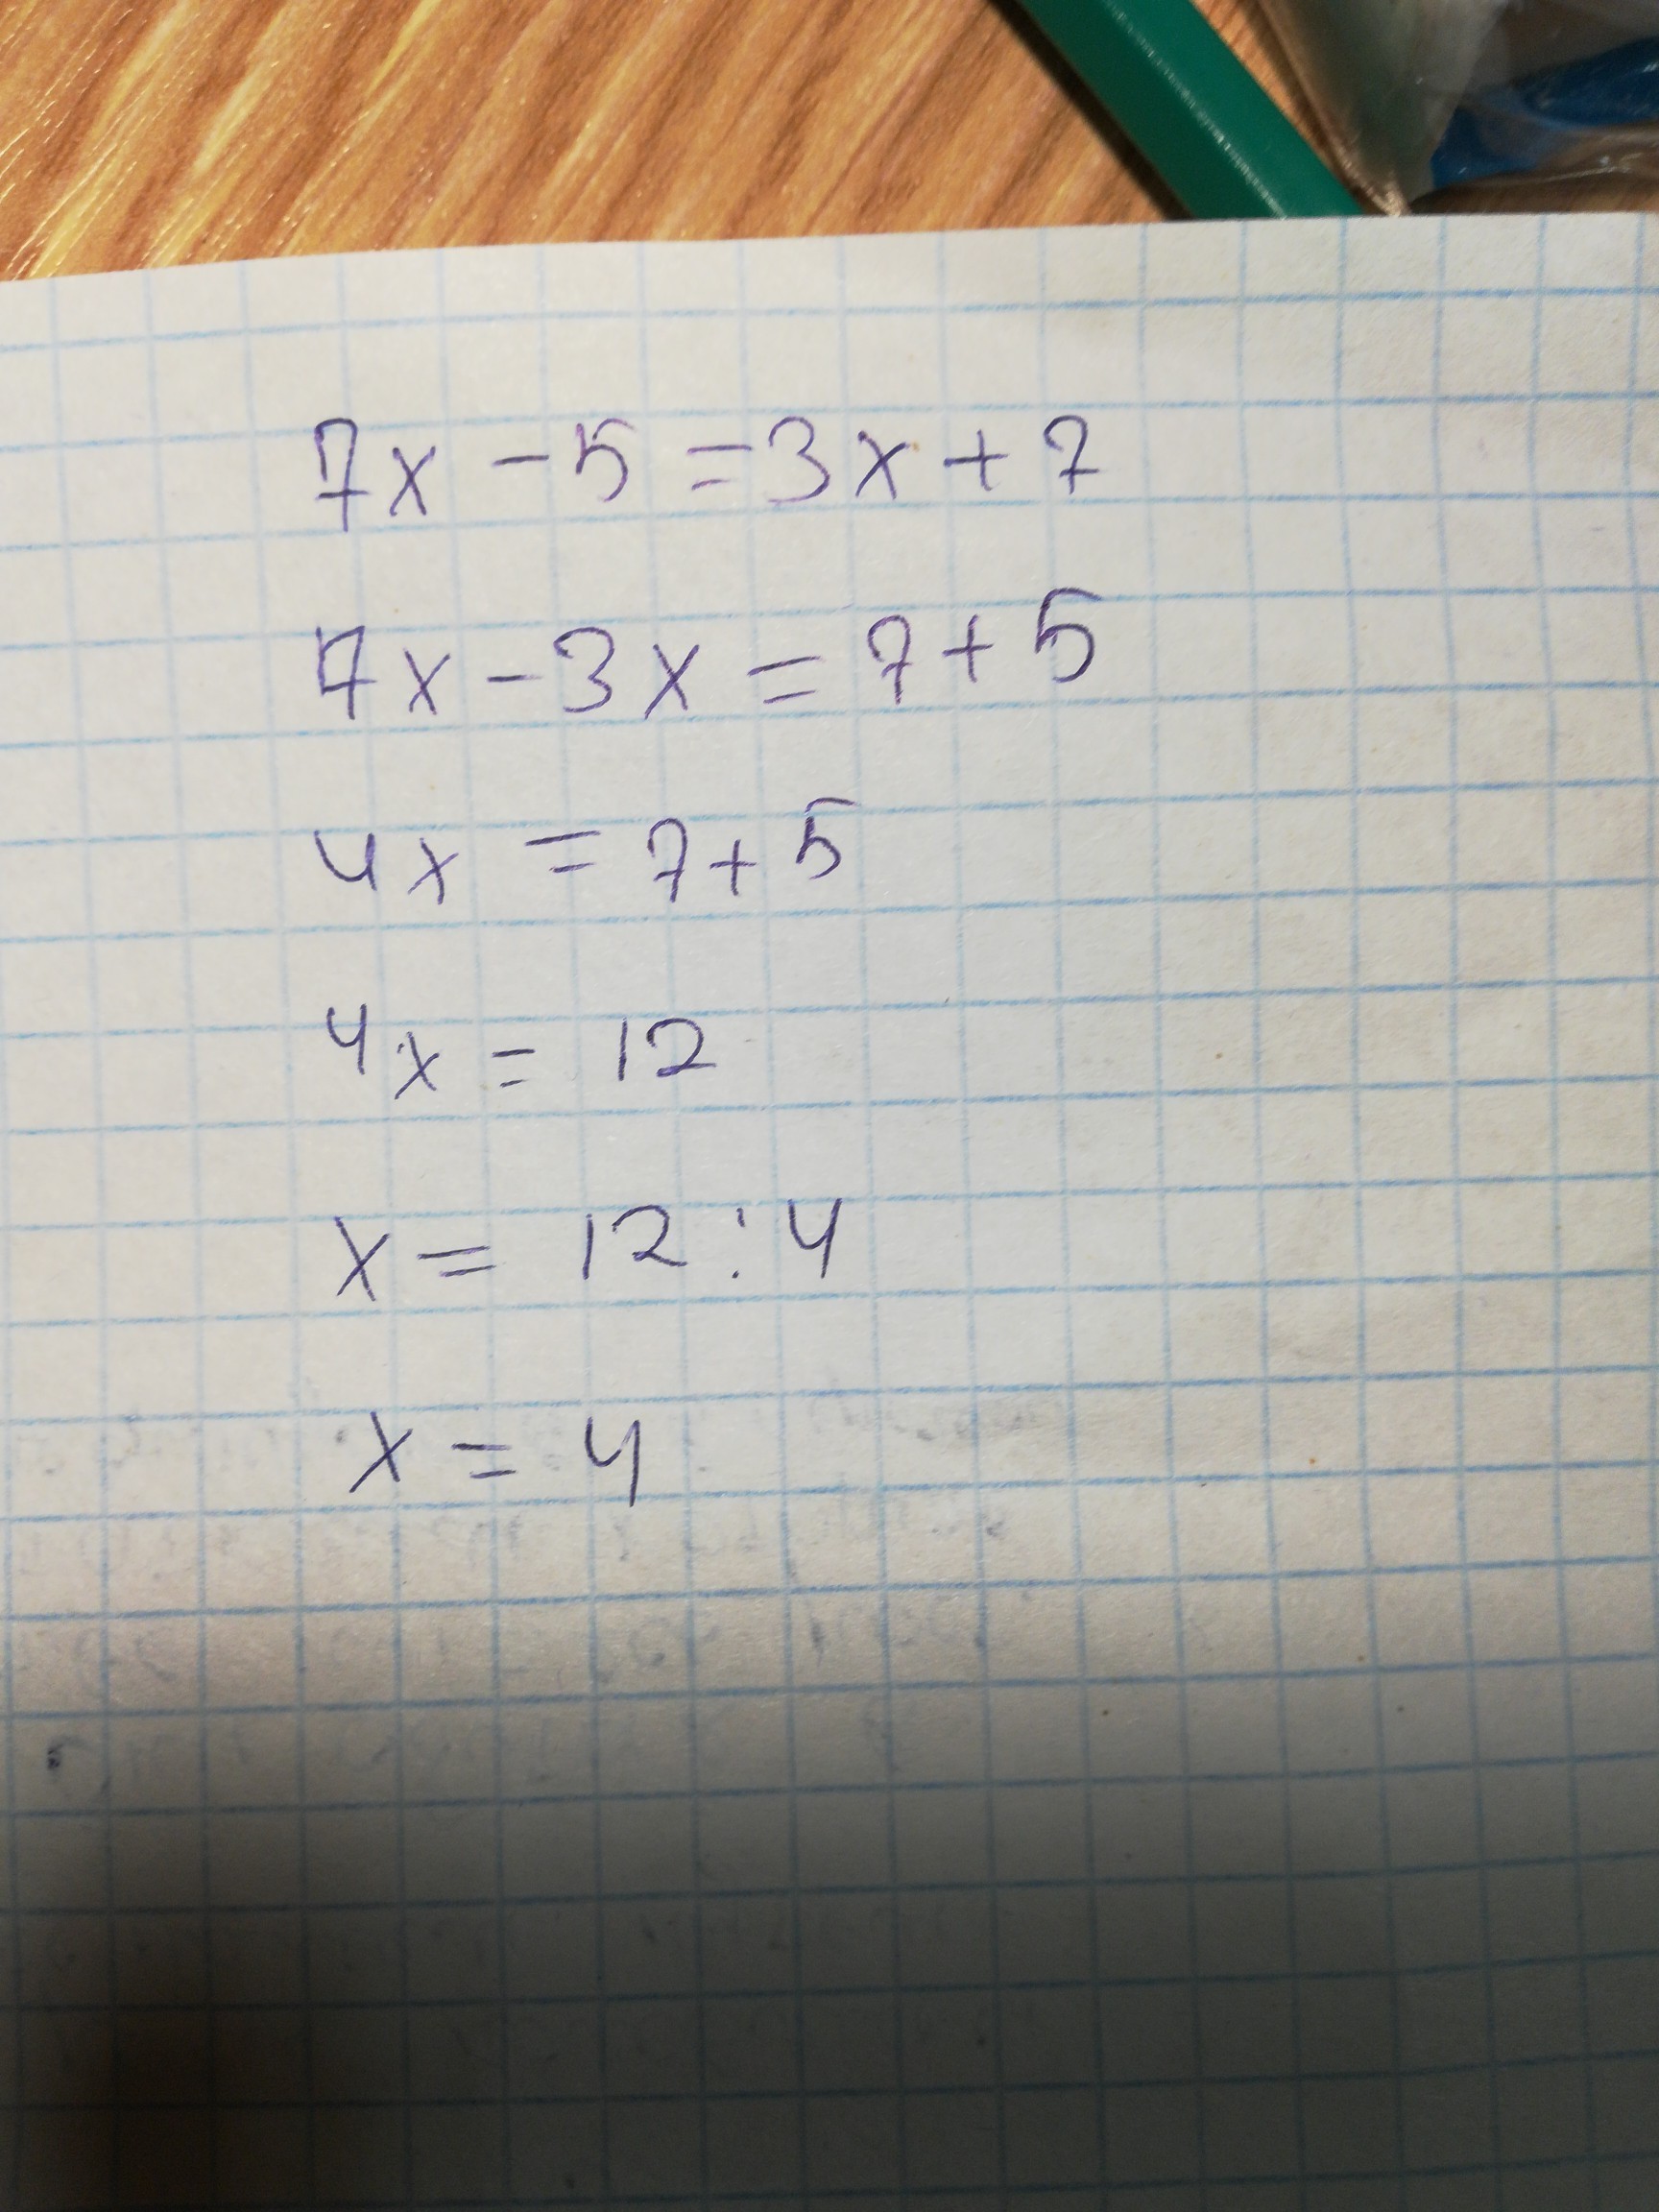 7x - 5 = 3x + 7
7x - 3x = 7 + 5
4x = 7 + 5
4x = 12
x = 12 : 4
x = 4